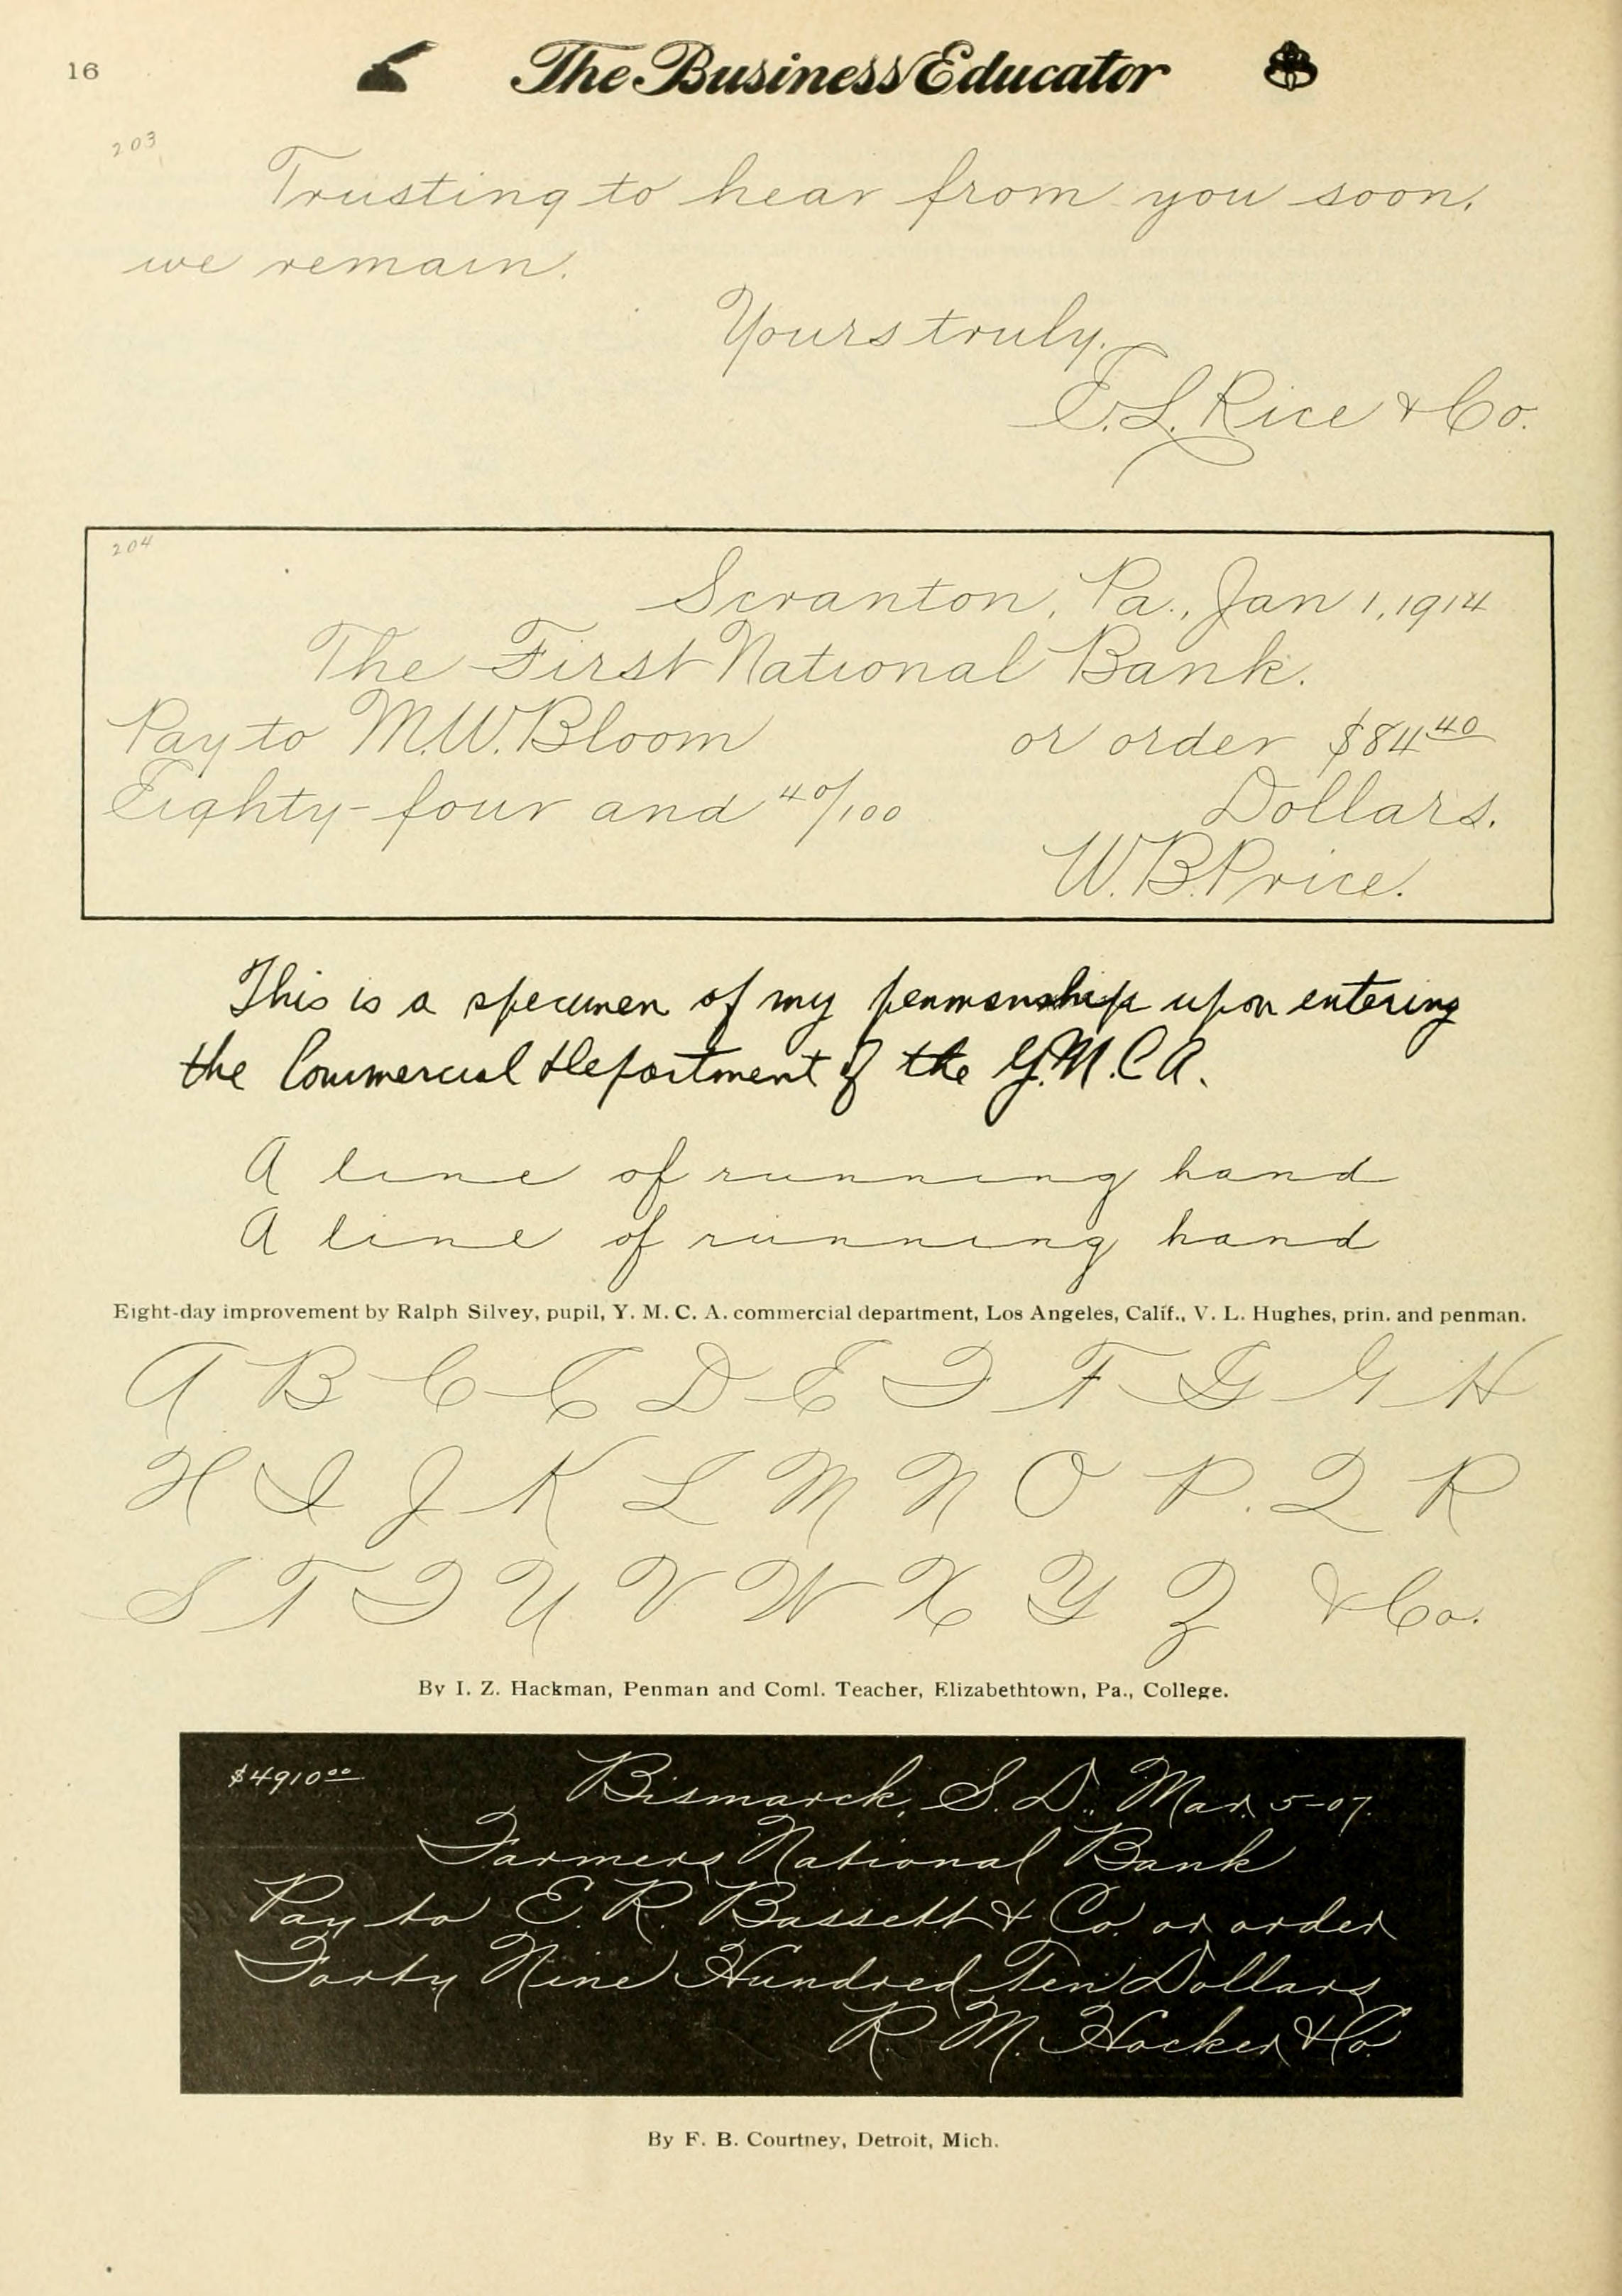 16
The Business Educator
203
Trusting to hear from you soon,
we remain.
Yours truly.
E. L. Rice & Co.
204
Scranton, Pa., Jan 1, 1914
The First National Bank.
Pay to M. W. Bloom or order $84 40
Eighty-four and 40/100 Dollars.
W. B. Price.
This is a specimen of my penmanship upon entering
the Commercial Department of the Y. M. C. A.
A line of running hand
A line of running hand
Eight-day improvement by Ralph Silvey, pupil, Y. M. C. A. commercial department, Los Angeles, Calif., V. L. Hughes, prin. and penman.
A B C C D E F F G G H
H I J K L M N O P. Q R
S T T U V W X Y Z & Co.
By I. Z. Hackman, Penman and Coml. Teacher, Elizabethtown, Pa., College.
$4910 00 Bismarck, S. D., Mar. 5-07.
Farmers National Bank
Pay to E. R. Bassett & Co. or order
Forty Nine Hundred Ten Dollars
R. M. Hocker & Co.
By F. B. Courtney, Detroit, Mich.